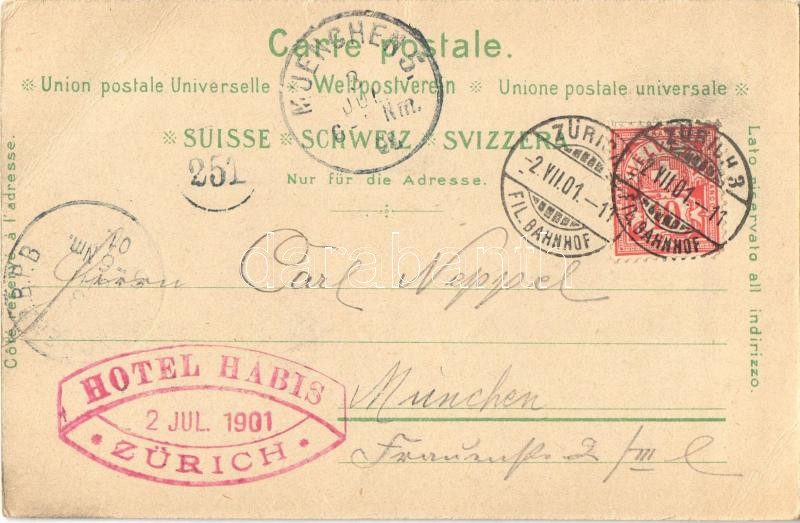 Carte postale.
※ Union postale Universelle ※ Weltpostverein ※ Unione postale universale ※
※ SUISSE ※ SCHWEIZ ※ SVIZZERA
Nur für die Adresse.
Côté réservé à l'adresse.
Lato riservato all indirizzo.
MUENCHEN
JUL
Nm.
251
ZÜRICH 3
-2.VII.01.-11
FIL.BAHNHOF
ZÜRICH 3
-2.VII.01.-11
FIL.BAHNHOF
Herrn Carl Neppel
München
HOTEL HABIS
2 JUL. 1901
• ZÜRICH •
darabanth